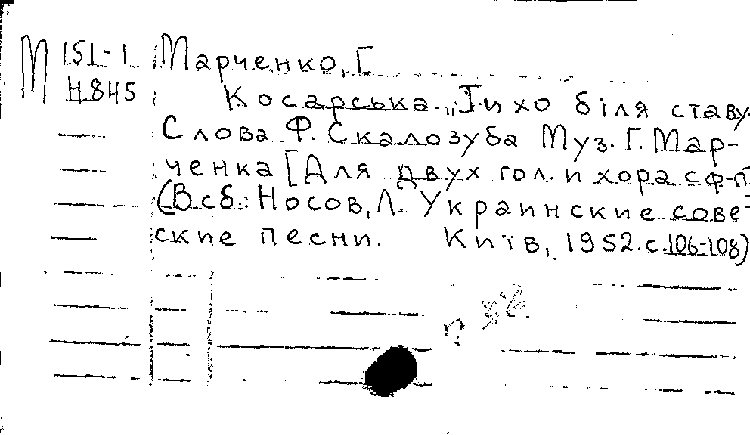 М 151-1 Марченко, Г.
Н845 Косарська. „Тихо біля ставу.
Слова Ф. Скалозуба Муз. Г. Мар-
ченка [Для двух гол. и хора с ф-п
(В сб.: Носов, Л. Украинские сове-
ские песни. Київ, 1952. с. 106-108)